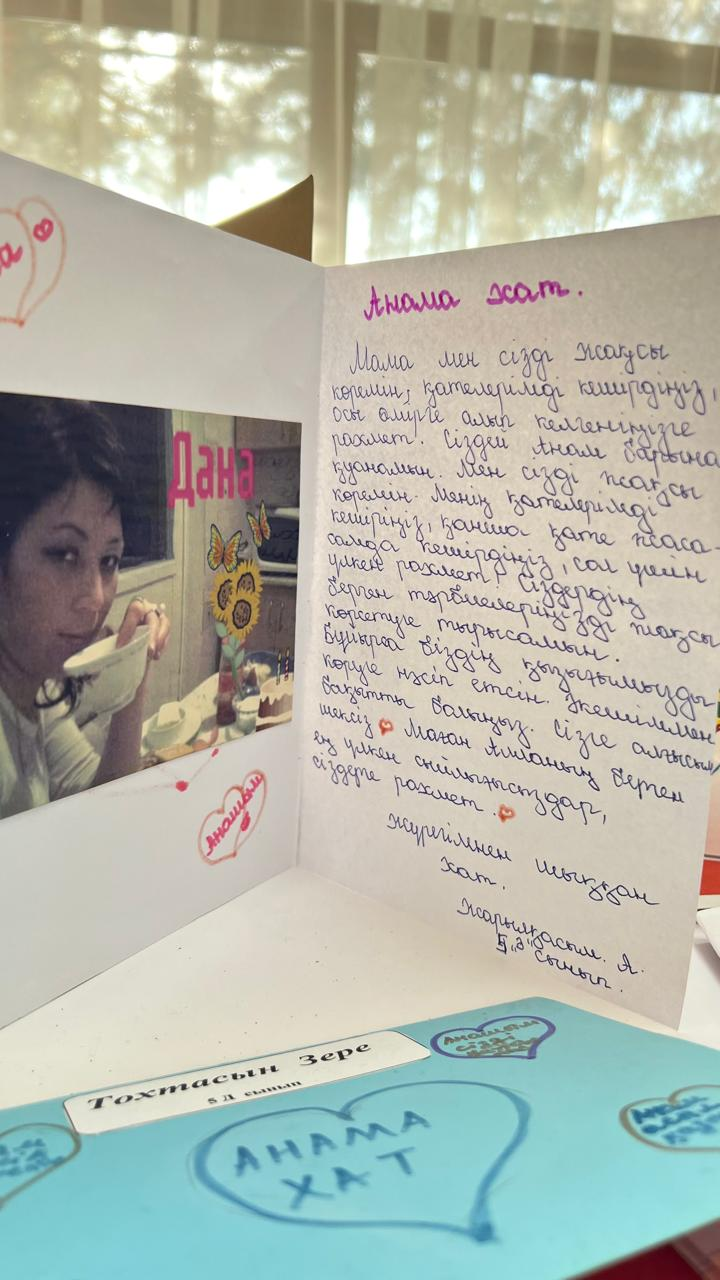 Дана
Анашым
Анама хат.
Мама мен сізді жақсы
көремін, қателерімді кешірдіңіз,
осы өмірге алып келгеніңізге
рахмет. Сіздей Анам барына
қуанамын. Мен сізді жақсы
көремін. Менің қателерімді
кешіріңіз, қанша қате жаса-
самда кешірдіңіз, сол үшін
үлкен рахмет! Сіздердің
берген тәрбиелеріңізді жақсы
көрсетуге тырысамын.
Бұйырса біздің қызығымызды
көруге нәсіп етсін. Әкешіммен
бақытты болыңыз. Сізге алғысым
шексіз Маған Алланың берген
ең үлкен сыйлығысыздар,
сіздерге рахмет.
Жүрегімнен шыққан
хат.
Жарылқасым. А.
5 "Ә" сынып.
Тохтасын Зере
5 Д сынып
Анашым
сізді
АНАМА
ХАТ